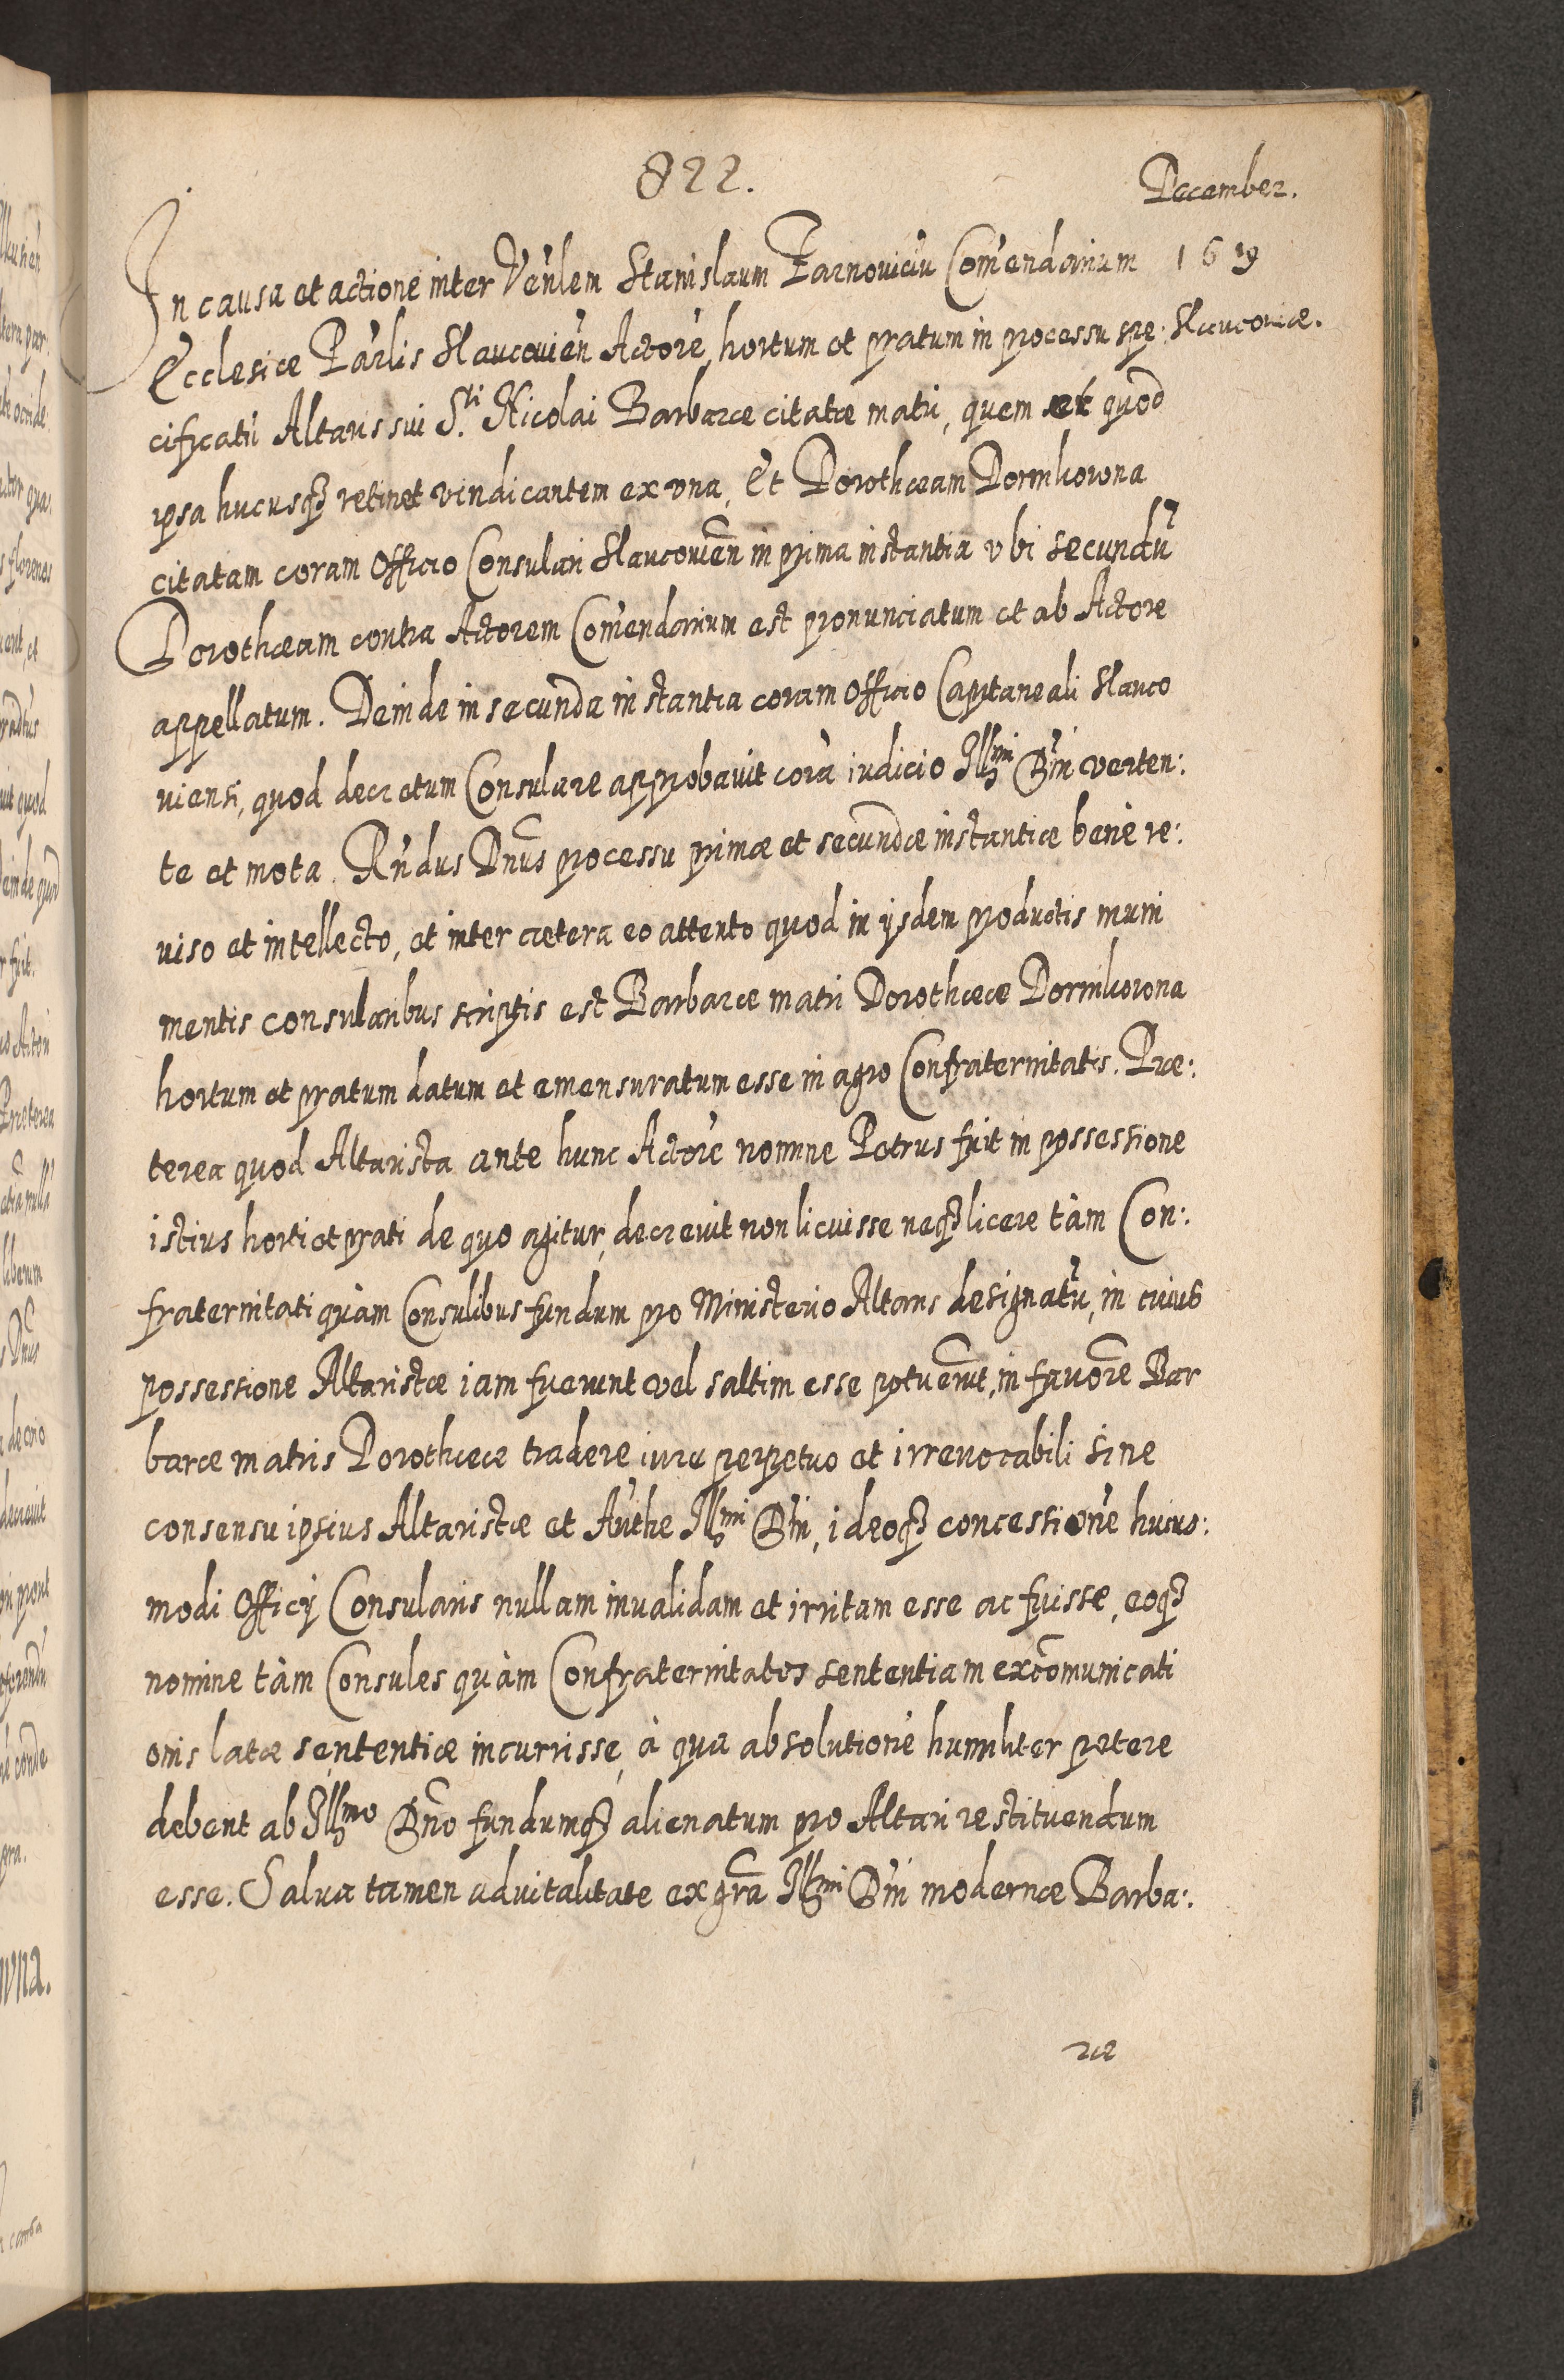 822.
December.
In causa et actione inter Venłem Stanislaum Tarnoviciu Comendarium 1619
Ecclesiæ Parlis Slaucovien Actore, hortum et pratum in processu spe: Slaucoviæ.
cificatu Altaris sui S.ti Nicolai Barbaræ citatæ matri, quem et quod
ipsa hucusq; retinet vindicantem ex vna, Et Dorothæam Dormikorona
citatam coram Officio Consulari Slaucovien in prima instantia vbi secundu
Dorothæam contra Actorem Comendarium est pronunciatum et ab Actore
appellatum. Deinde in secunda instantia coram Officio Capitaneali Slauco
viensi, quod decretum Consulare approbavit cora iudicio Illmi Dni verten:
te et mota. Rndus Dnus processu primæ et secundæ instantiæ bene re:
uiso et intellecto, et inter cætera eo attento quod in ijsdem productis muni
mentis consularibus scriptis est Barbaræ matri Dorothææ Dormikorona
hortum et pratum datum et emensuratum esse in agro Confraternitatis. Præ:
terea quod Altarista ante hunc Actore nomine Petrus fuit in possessione
istius horti et prati de quo agitur, decrevit non licuisse neq; licere tàm Con:
fraternitati quàm Consulibus fundum pro Ministerio Altaris designatu, in cuius
possessione Altaristæ iam fuerunt vel saltim esse potuerunt, in favore Bar
baræ matris Dorothææ tradere iure perpetuo et irrevocabili sine
consensu ipsius Altaristæ et Authe Illmi Dni, ideoq; concessione huius:
modi Officij Consularis nullam invalidam et irritam esse ac fuisse, eoq;
nomine tàm Consules quàm Confraternitates sententiam excomunicati
onis latæ sententiæ incurrisse, à qua absolutione humiliter petere
debent ab Illmo Dno fundumq; alienatum pro Altari restituendum
esse. Salva tamen advitalitate ex gra Illmi Dni modernæ Barba:
ræ